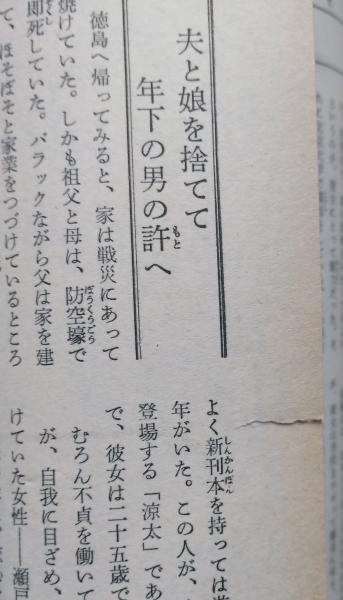 夫と娘を捨てて
年下の男の許へ
徳島へ帰ってみると、家は戦災にあって
焼けていた。しかも祖父と母は、防空壕で
即死していた。バラックながら父は家を建
て、ほそぼそと家業をつづけているところ
よく新刊本を持っては
年がいた。この人が、
登場する「涼太」であ
で、彼女は二十五歳で
むろん不貞を働いて
が、自我に目ざめ、
けていた女性――瀬戸